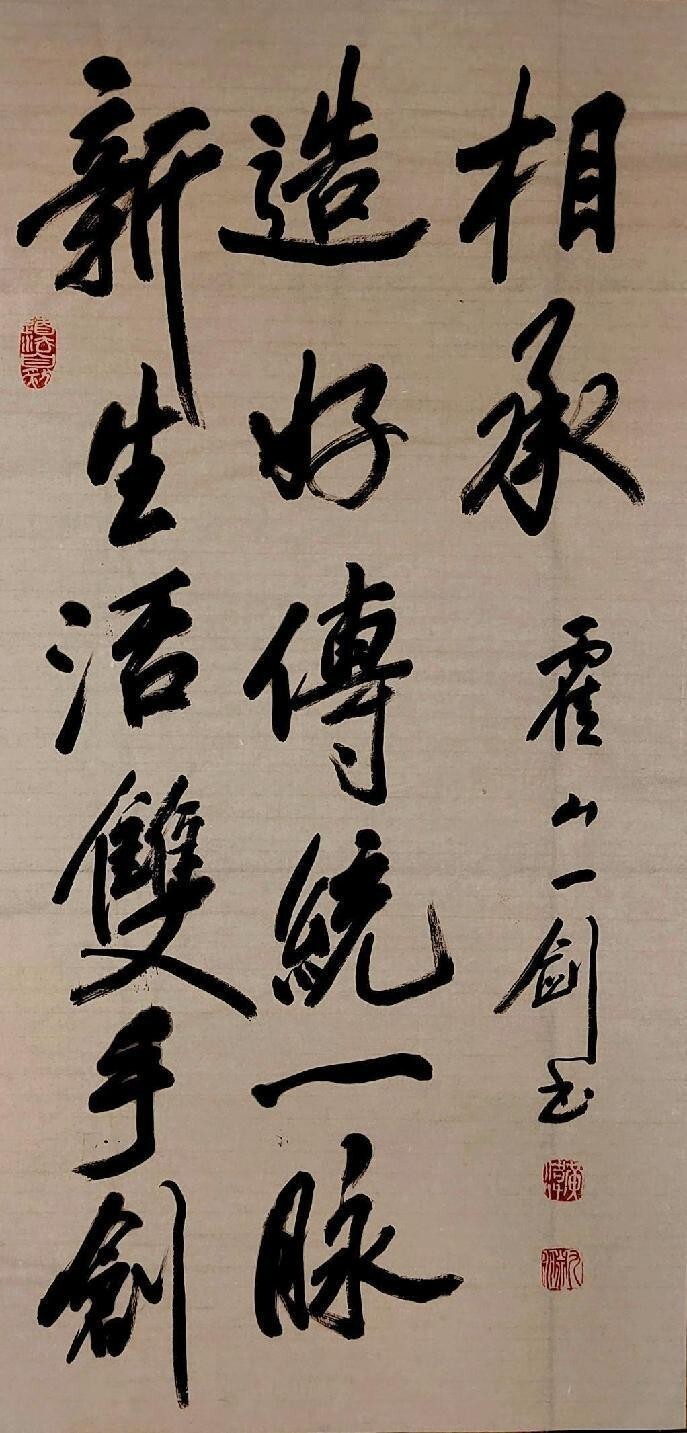 新生活雙手創
造好傳統一脉
相承
霍山一劍书